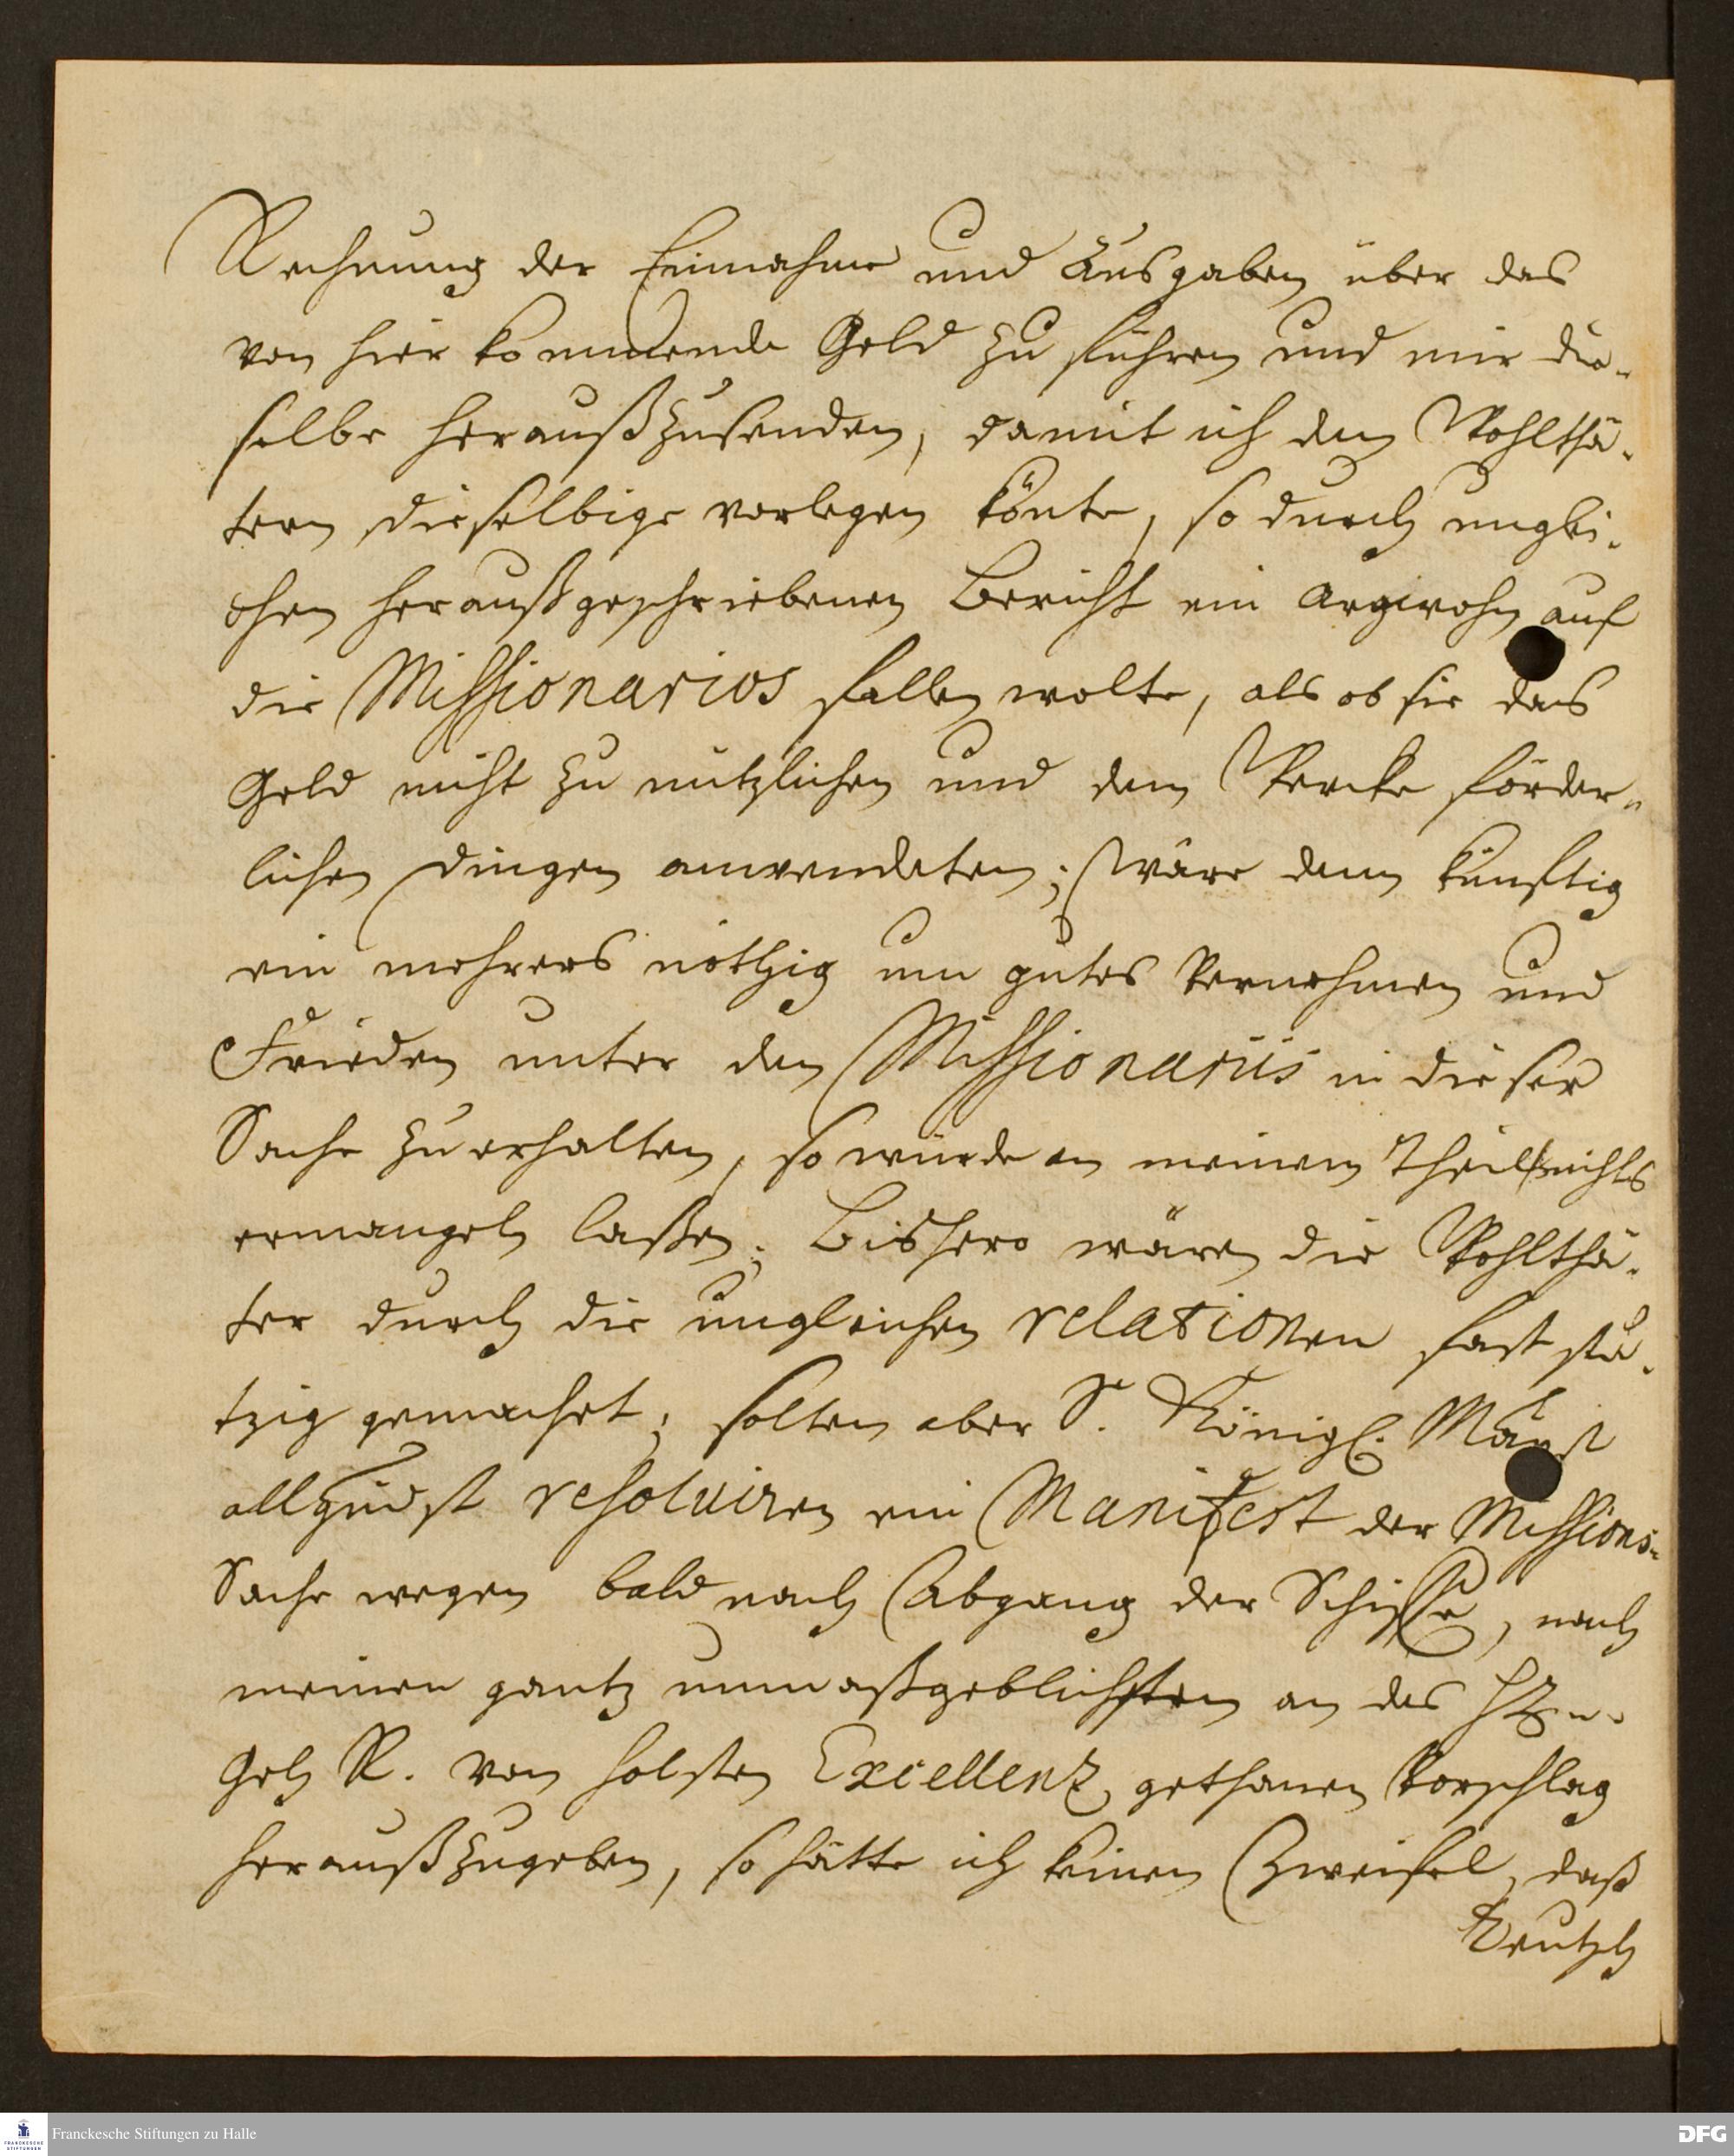 Rechnung der Einnahme und Ausgaben über das
von hier kommende Geld zu führen und mir die-
selbe heraußzusenden, damit ich den Wohlthä-
tern dieselbige vorlegen könte, so durch unglei-
chen heraußgeschriebenen Bericht ein Argwohn auf
die Missionarios fallen wolte, als ob sie das
Geld nicht zu nützlichen und dem Wercke förder-
lichen Dingen anwendeten; Wäre denn künftig
ein mehrers nöthig um gutes Vernehmen und
Frieden unter den Missionariis in dieser
Sache zu erhalten, so würde an meinem Theil nichts
ermangeln laßen. Bishero wären die Wohlthä-
ter durch die ungleichen relationen fast stu-
tzig gemachet; solten aber S. Königl. Mayst
allgndst resolviren ein Manifest der Missions-
Sache wegen bald nach Abgang der Schiffe, nach
meinen gantz unmaßgeblichsten an des
Geh R. von Holsten Excellenz, gethanen Vorschlag
heraußzugeben, so hätte ich keinen Zweifel, daß
Teutschl
Franckesche Stiftungen zu Halle
DFG